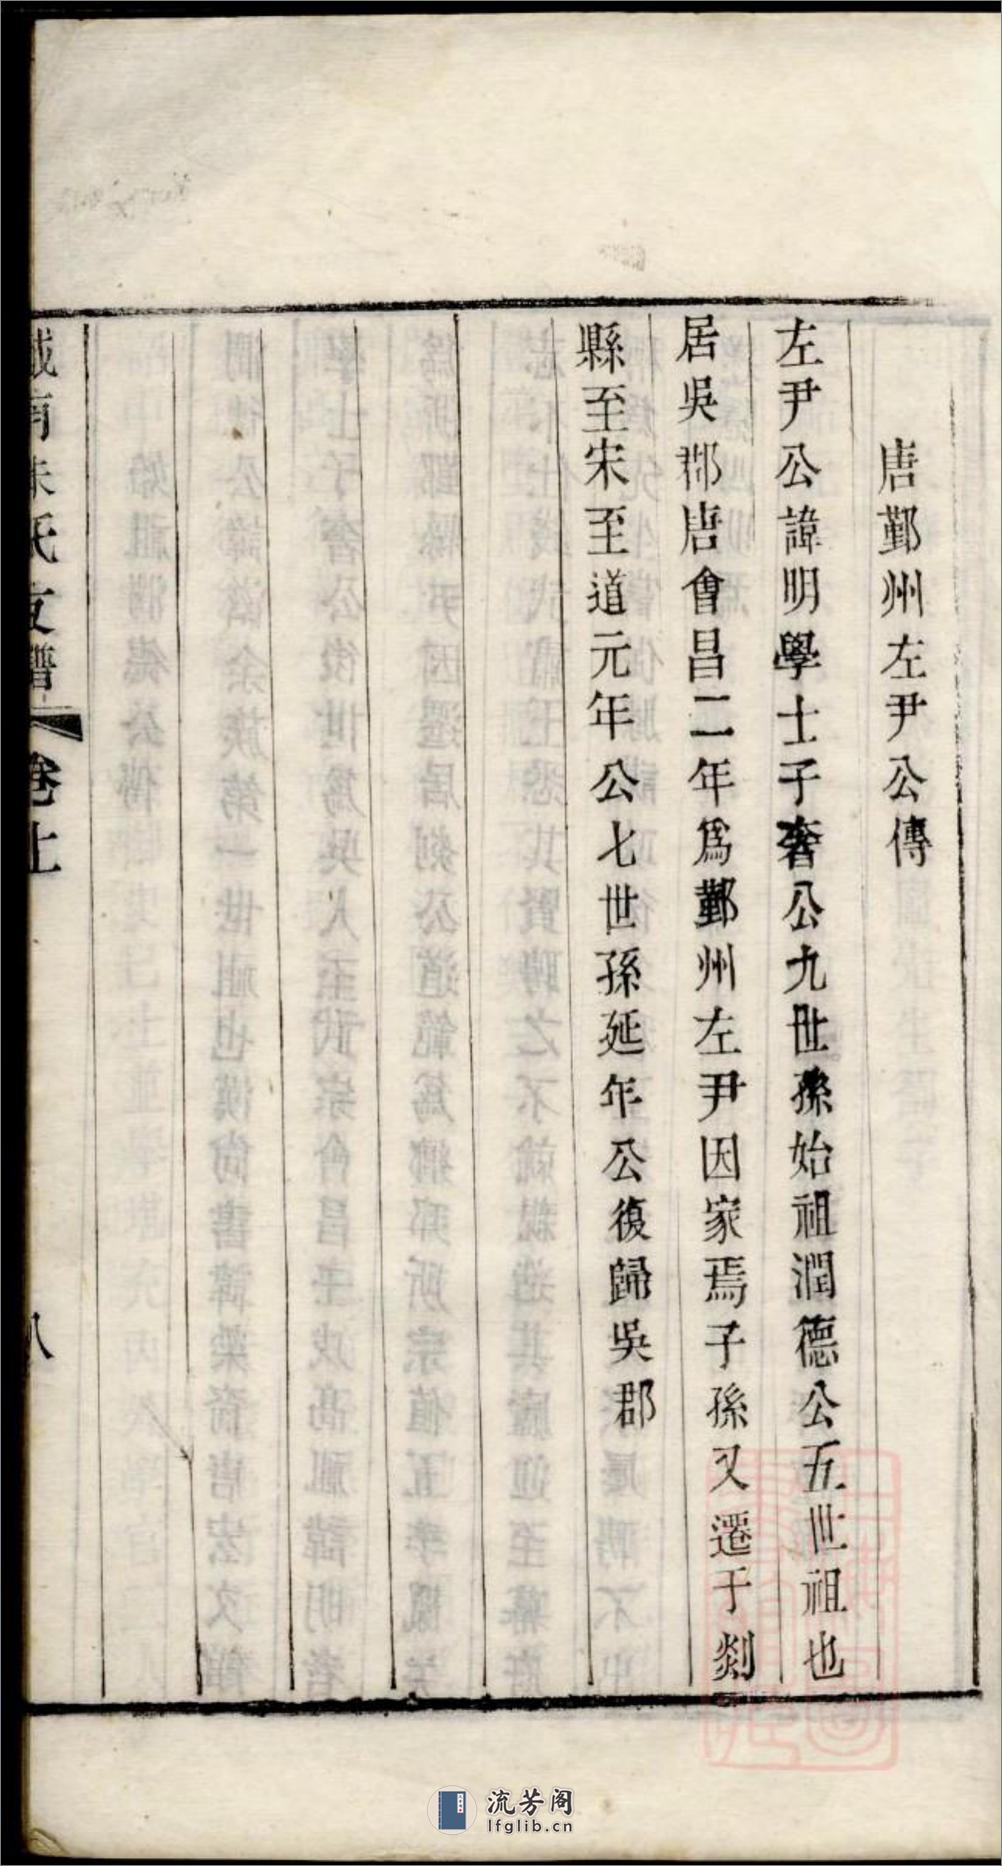 唐鄞州左尹公傳
左尹公諱明學士子奢公九世孫始祖潤德公五世祖也
居吳郡唐會昌二年爲鄞州左尹因家焉子孫又遷于剡
縣至宋至道元年公七世孫延年公復歸吳郡
城南朱氏支譜 卷上 八
流芳阁
lfglib.cn